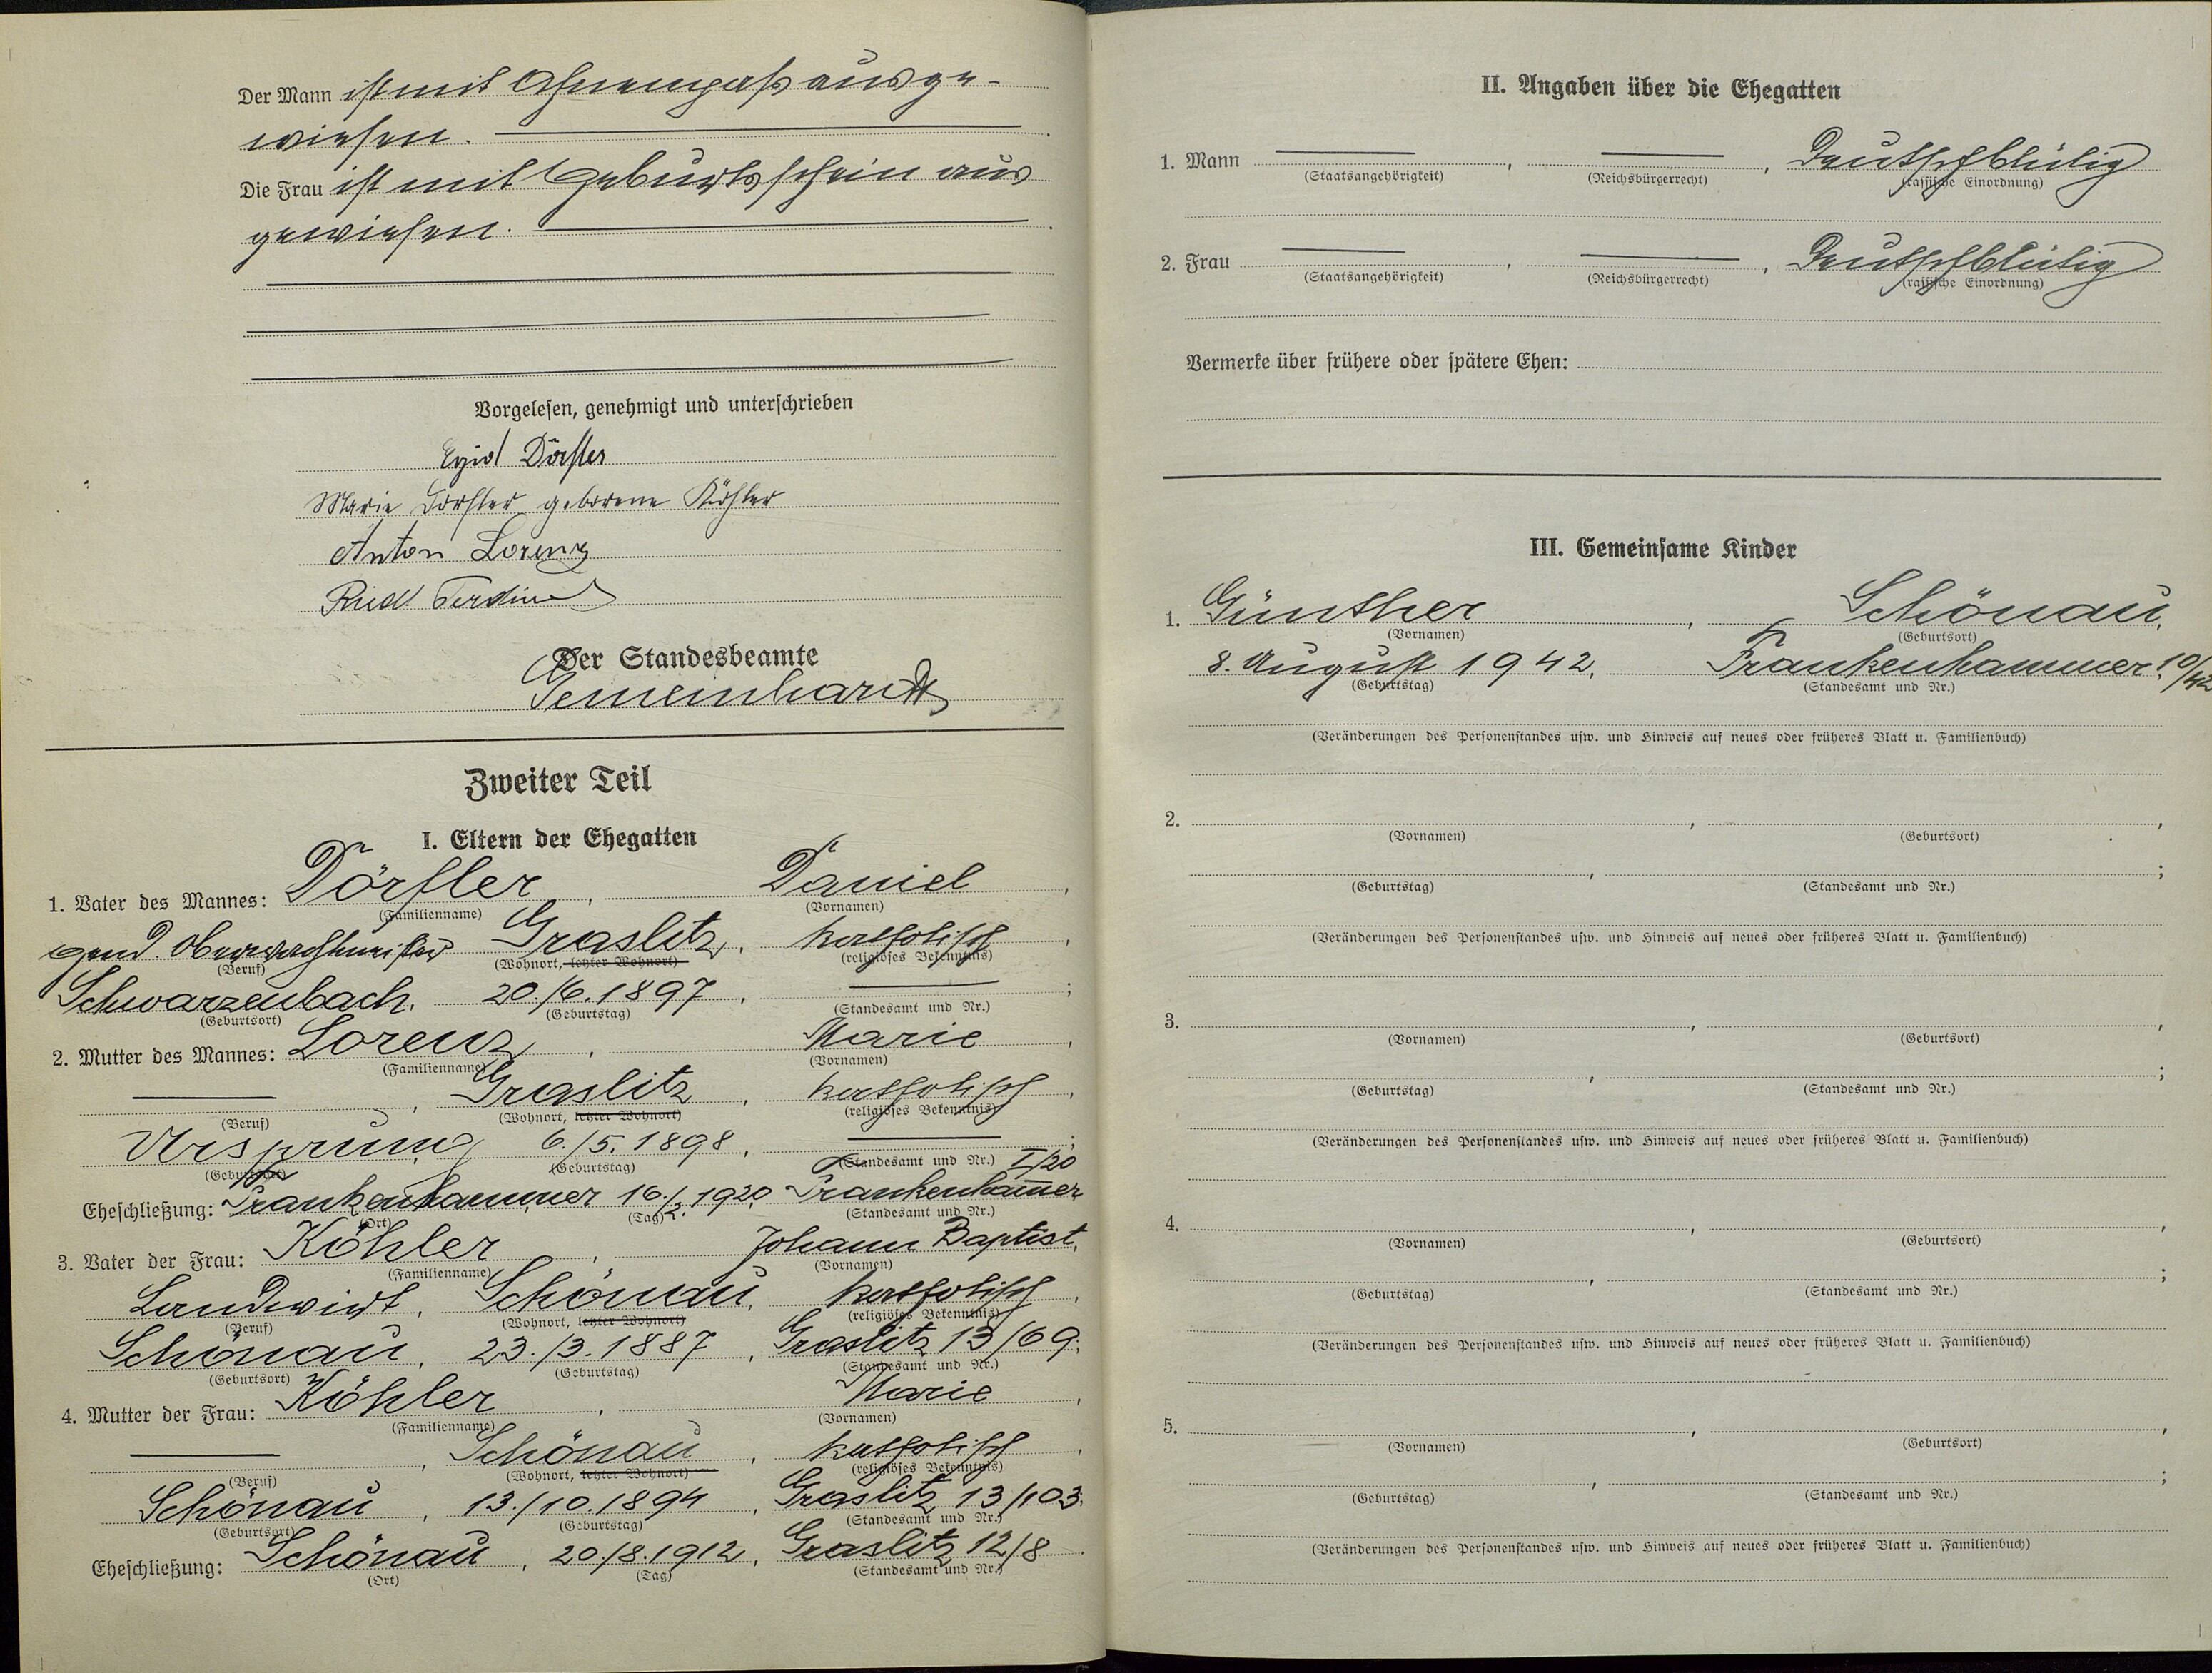 Der Mann ist mit Ahnenpaß ausge-
wiesen.
Die Frau ist mit Geburtsschein aus
gewiesen.
Vorgelesen, genehmigt und unterschrieben
Egid Dörfler
Marie Dörfler geborene Köhler
Anton Lorenz
Riedl Ferdinand
Der Standesbeamte
Gemeinhardt
Zweiter Teil
I. Eltern der Ehegatten
1. Vater des Mannes: Dörfler, Daniel,
(Familienname) (Vornamen)
gend. Oberwachtmeister Graslitz, katholisch,
(Beruf) (Wohnort, letzter Wohnort) (religiöses Bekenntnis)
Schwarzenbach, 20./6.1897, ;
(Geburtsort) (Geburtstag) (Standesamt und Nr.)
2. Mutter des Mannes: Lorenz, Marie,
(Familienname) (Vornamen)
, Graslitz, katholisch,
(Beruf) (Wohnort, letzter Wohnort) (religiöses Bekenntnis)
Ursprung 6./5.1898, ;
(Geburtsort) (Geburtstag) (Standesamt und Nr.) I/20
Eheschließung: Frankenhammer 16./2.1920, Frankenham̅er
(Ort) (Tag) (Standesamt und Nr.)
3. Vater der Frau: Köhler, Johann Baptist,
(Familienname) (Vornamen)
Landwirt, Schönau, katholisch,
(Beruf) (Wohnort, letzter Wohnort) (religiöses Bekenntnis)
Schönau, 23./3.1887, Graslitz 13/69;
(Geburtsort) (Geburtstag) (Standesamt und Nr.)
4. Mutter der Frau: Köhler, Marie,
(Familienname) (Vornamen)
, Schönau, katholisch,
(Beruf) (Wohnort, letzter Wohnort) (religiöses Bekenntnis)
Schönau, 13./10.1894, Graslitz 13/103;
(Geburtsort) (Geburtstag) (Standesamt und Nr.)
Eheschließung: Schönau, 20/8.1912, Graslitz 12/8
(Ort) (Tag) (Standesamt und Nr.)
II. Angaben über die Ehegatten
1. Mann , , Deutschblütig
(Staatsangehörigkeit) (Reichsbürgerrecht) (rassische Einordnung)
2. Frau , , Deutschblütig
(Staatsangehörigkeit) (Reichsbürgerrecht) (rassische Einordnung)
Vermerke über frühere oder spätere Ehen:
III. Gemeinsame Kinder
1. Günther, Schönau,
(Vornamen) (Geburtsort)
8. August 1942, Frankenhammer 10/42
(Geburtstag) (Standesamt und Nr.)
(Veränderungen des Personenstandes usw. und Hinweis auf neues oder früheres Blatt u. Familienbuch)
2. , ,
(Vornamen) (Geburtsort)
, ;
(Geburtstag) (Standesamt und Nr.)
(Veränderungen des Personenstandes usw. und Hinweis auf neues oder früheres Blatt u. Familienbuch)
3. , ,
(Vornamen) (Geburtsort)
, ;
(Geburtstag) (Standesamt und Nr.)
(Veränderungen des Personenstandes usw. und Hinweis auf neues oder früheres Blatt u. Familienbuch)
4. , ,
(Vornamen) (Geburtsort)
, ;
(Geburtstag) (Standesamt und Nr.)
(Veränderungen des Personenstandes usw. und Hinweis auf neues oder früheres Blatt u. Familienbuch)
5. , ,
(Vornamen) (Geburtsort)
, ;
(Geburtstag) (Standesamt und Nr.)
(Veränderungen des Personenstandes usw. und Hinweis auf neues oder früheres Blatt u. Familienbuch)